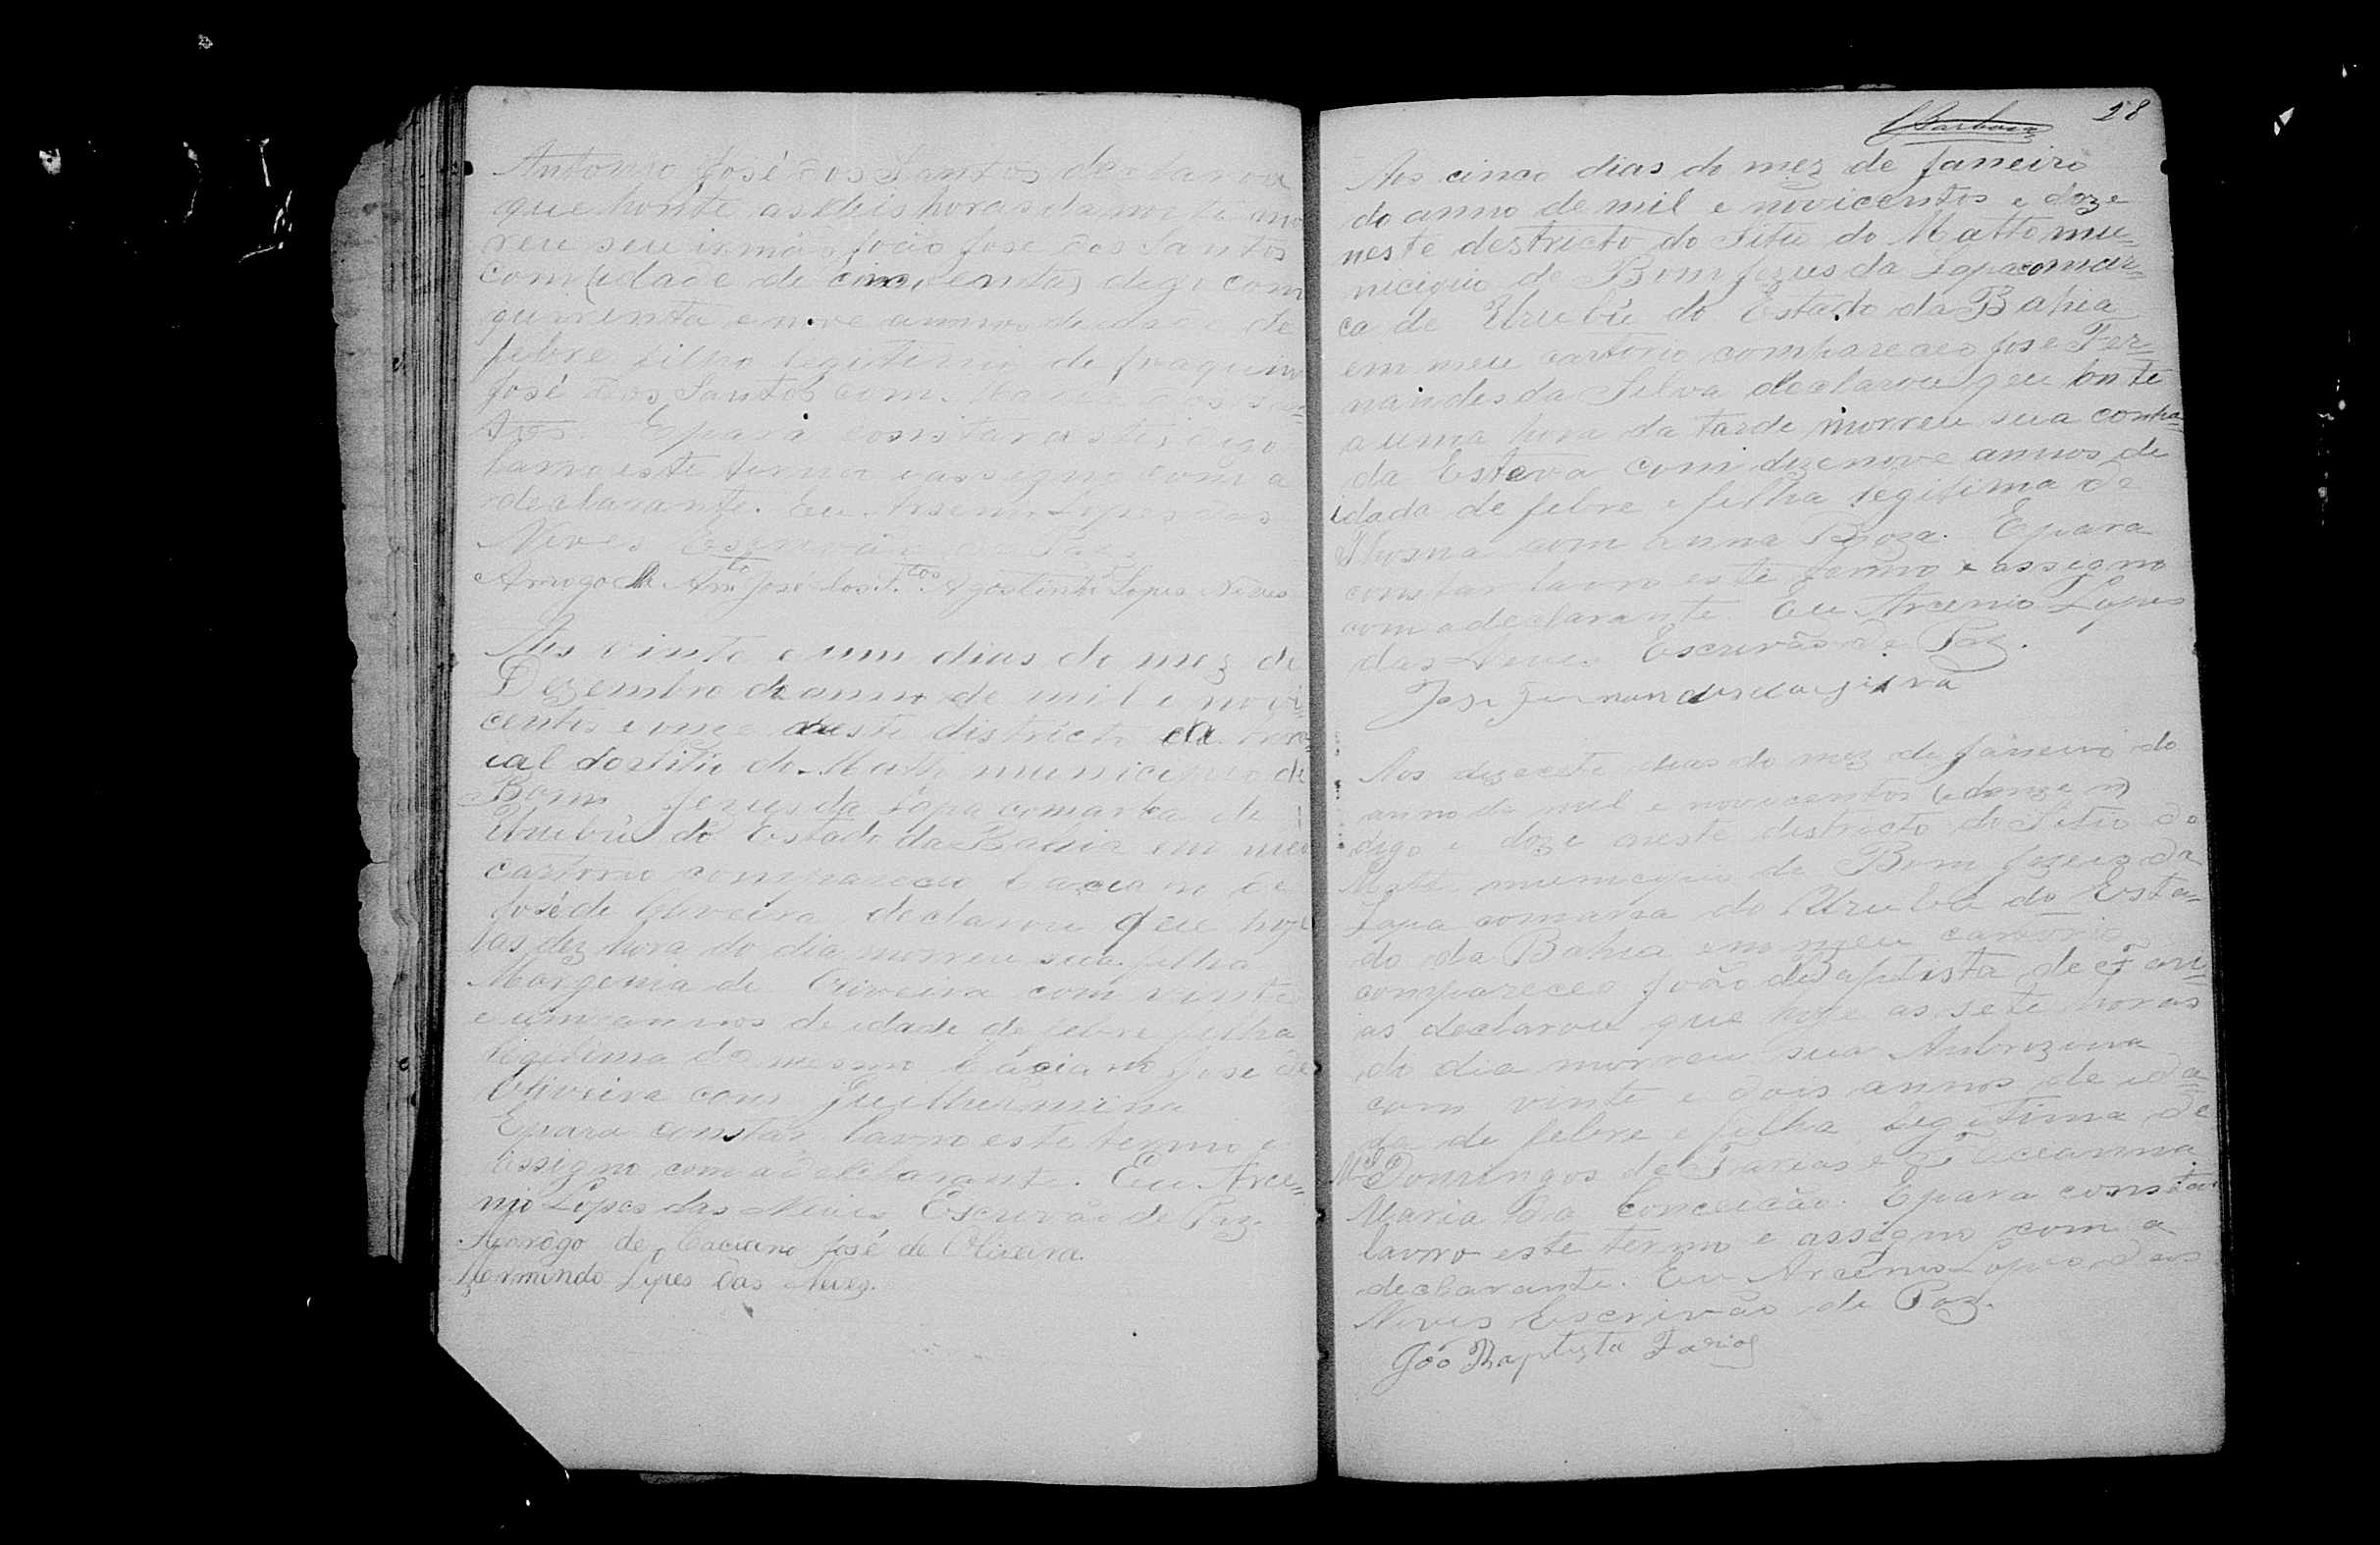 Antonio José dos Santos declarou
que honte as seis horas da noite mo
reu seu irmão João José dos Santos
com (idade de cincoenta) digo com
quarenta e nove annos de idade de
febre filho legitimo de Joaquim
José dos Santos com Maria dos San=
tos. E para constar digo
lavro este termo e assigno com a
declarante. Eu Arsenio Lopes das
Neves Escrivão de Paz.
Arrogo de Antº José dos Stos Agostinho Lopes Neves
Aos vinte e um dias do mez de
Dezembro do anno de mil e novi=
centos e onze neste districto
do sitio do Matto municipio de
Bom Jezus da Lapa comarca de
Urubú do Estado da Bahia em meu
cartorio compareceo Caciano de
José de Oliveira declarou que hoje
as dez hora do dia morreu sua filha
Margemia de Oliveira com vinte
e um annos de idade de febre filha
legitima do mesmo Caciano José de
Oliveira com Guilhermina
E para constar lavro este termo e
assigno com a declarante. Eu Arce=
nio Lopes das Neves Escrivão de Paz.
Arrogo de Caciano José de Oliveira.
Hermindo Lopes das Neves.
Barboza
58
Aos cinco dias do mez de Janeiro
do anno de mil e novicentos e doze
neste destricto do Sitio do Matto mu=
nicipio de Bom Jezus da Lapa comar=
ca de Urubú do Estado da Bahia
em meu cartorio compareceo Jose Fer=
nandes da Silva declarou qeu onte
a uma hora da tarde morreu sua conha=
da Esteva com dezenove annos de
idada de febre e filha legitima de
Thosma com anna Roza. E para
constar lavro este termo e assigno
com a declarante Eu Arcenio Lopes
das Neves Escrivão de Paz.
Jose Fernandes da Silva
Aos dezecete dias do mez de Janeiro do
anno de mil e novicentos (e donze n)
digo e doze neste districto do Sitio do
Matto municipio de Bom Jezus da
Lapa comarca do Urubú do Esta=
do da Bahia em meu cartorio
compareceo João de Baptista de Fari=
as declarou que hoje as sete horas
do dia morreu sua Ambrozina
com vinte e dois annos de ida=
da de febre e filha legitima de
Mel Domingos de Farias e Feleceanna
Maria da Conceicão. E para constar
lavro este termo e assigno com a
declarante. Eu Arcenio Lopes das
Neves Escrivão de Paz.
João Baptista Farias